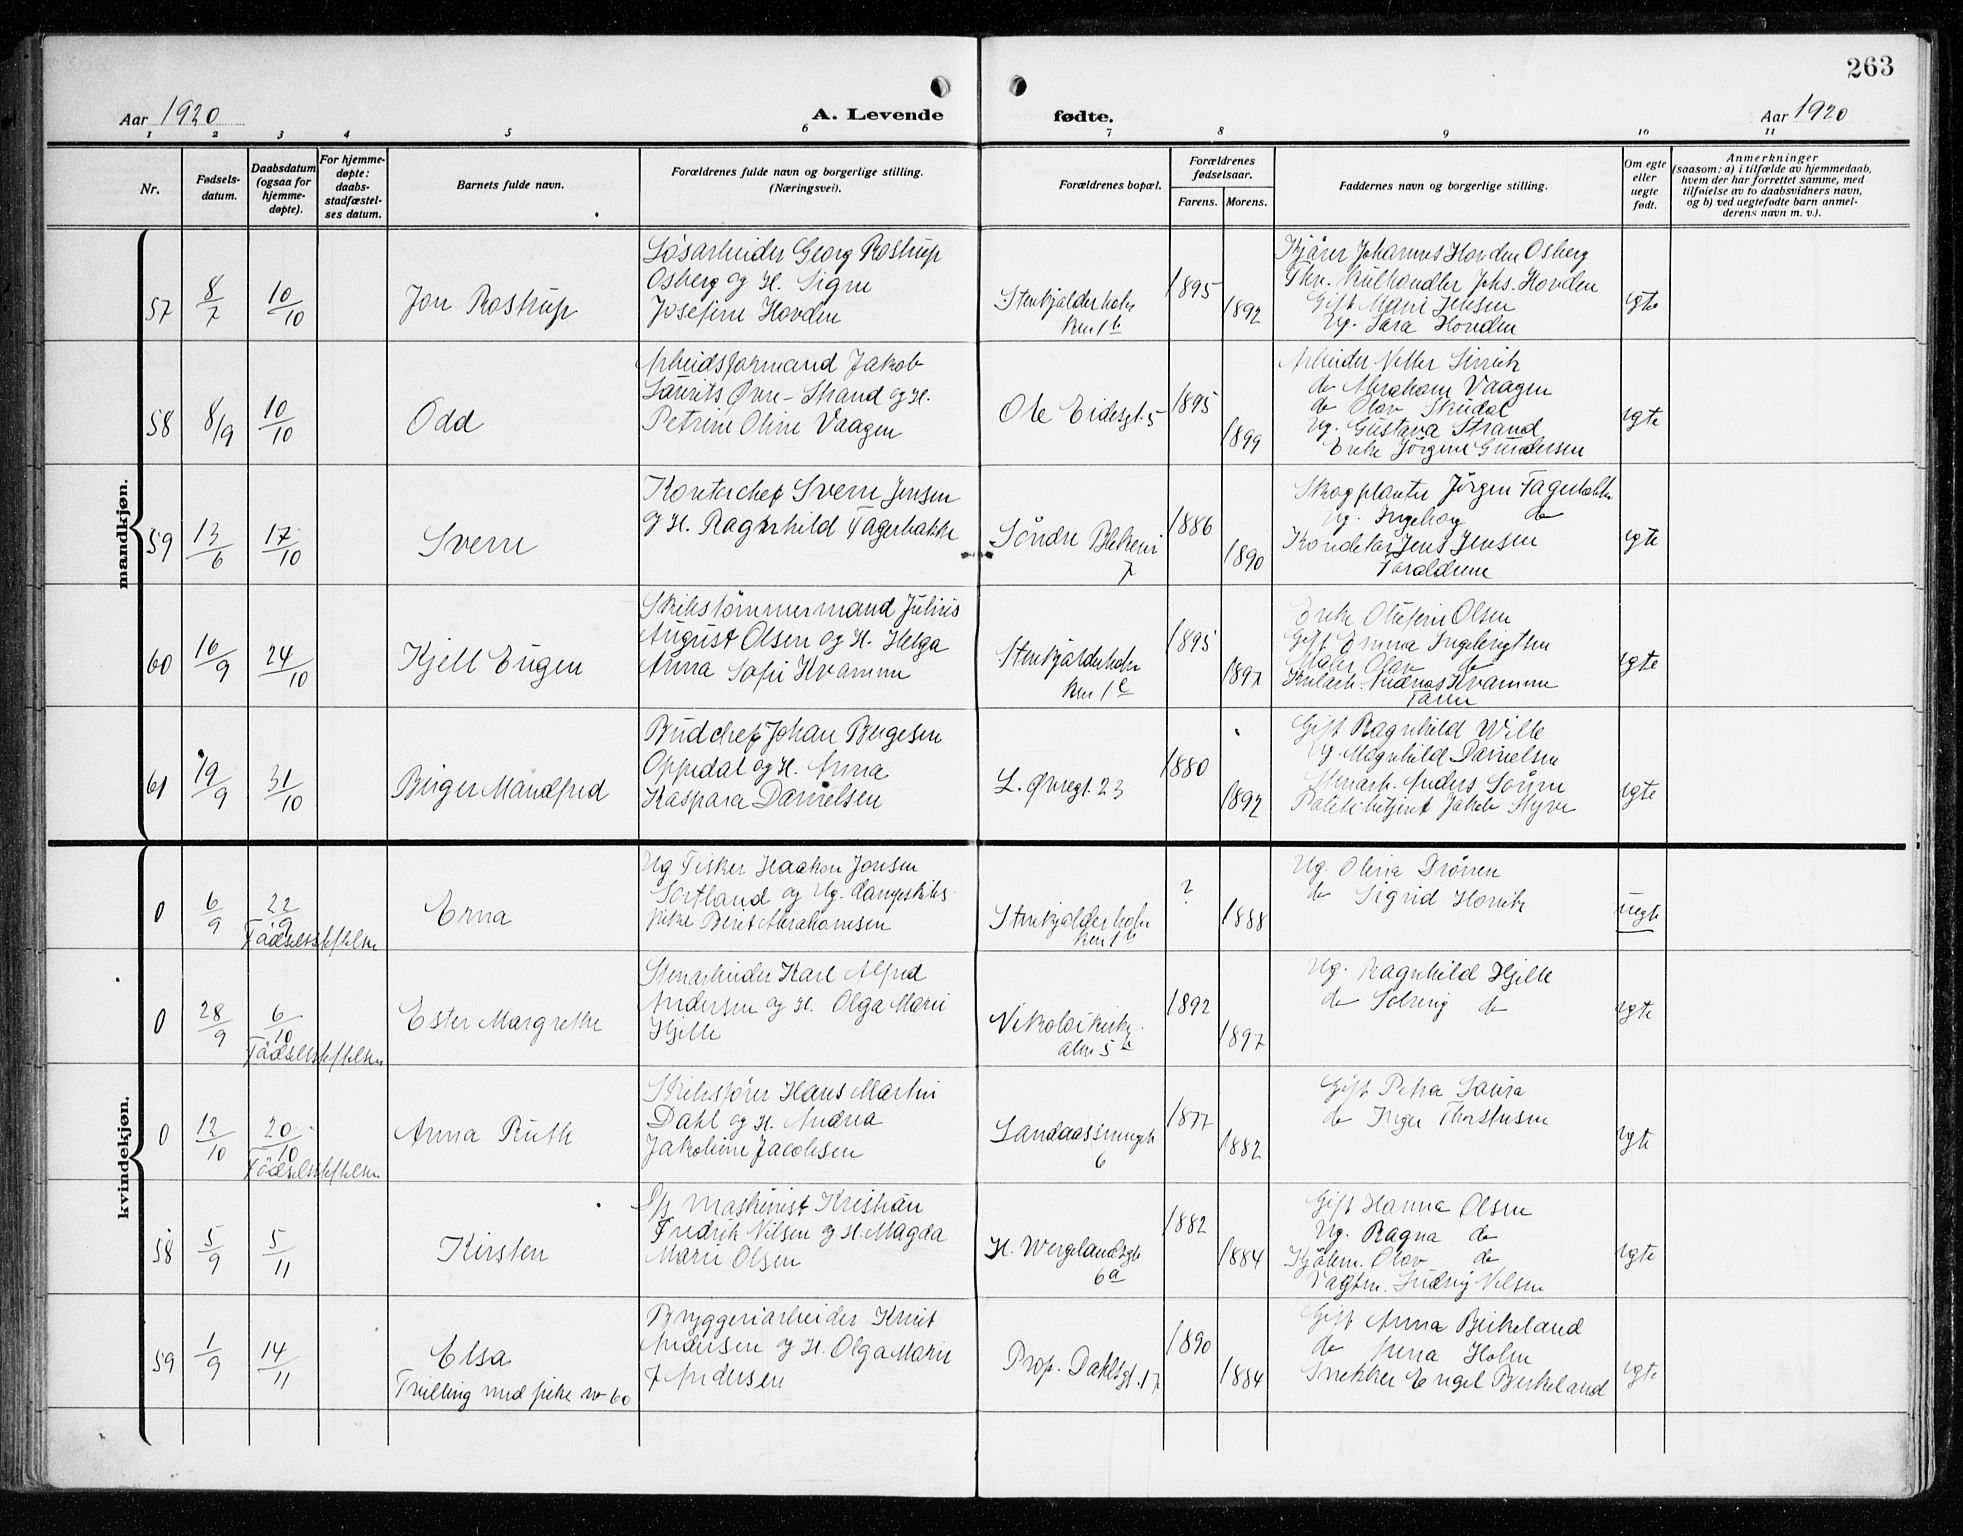 263
Aar 1920
A. Levende
fødte.
Aar 1920
1 2 3 4 5 6 7 8 9 10 11
Nr.
Fødsels-
datum.
Daabsdatum
(ogsaa for
hjemme-
døpte).
For hjemme-
døpte:
daabs-
stadfæstel-
ses datum.
Barnets fulde navn.
Forældrenes fulde navn og borgerlige stilling.
(Næringsvei).
Forældrenes bopæl.
Forældrenes
fødselsaar.
Farens. Morens.
Faddernes navn og borgerlige stilling.
Om egte
eller
uegte
født.
Anmerkninger
(saasom: a) i tilfælde av hjemmedaab,
hvem der har forrettet samme, med
tilføielse av to daabsvidners navn,
og b) ved uegtefødte barn anmel-
derens navn m. v.).
mandkjøn.
57 8/7 10/10 Jon Rostrup
Løsarbeider Georg Rostrup
Osberg og H. Signe
Josefine Hovden
Stenkjælderhol-
ken 1 b
1895 1892
Kjører Johannes Hovden Osberg
Johs. Hovden
Gift Marie Jensen
Ug. Sara Hovden
egte
58 8/9 10/10 Odd
Arbeidsformand Jakob
Laurits Øvre-Strand og H.
Petrine Oline Vaagen
Ole Eidesgt. 5
1895 1899
Arbeider
do Abraham Vaagen
do Olav Skudal
Ug. Gustava Strand
Enke Jørgine Gundersen
egte
59 13/6 17/10 Sverre
Kontorchef Sverre Jensen
og H. Ragnhild Fagerbakke
Søndre Blekevei
7
1886 1890
Skogplanter Jørgen Fagerbakke
Ug. Ingeborg do
Konditor Jens Jensen
Forældrene
egte
60 16/9 24/10 Kjell Eugen
Skibstømmermand Julius
August Olsen og H. Helga
Anna Sofie Kvamme
Stenkjælderhol-
ken 1 c
1895 1897
Enke Olufine Olsen
Gift Emma Ingebrigtsen
Olav do
Andreas Kvamme
Faren
egte
61 19/9 31/10 Birger Mandfred
Budchef Johan Bergesen
Oppedal og H. Anna
Kaspara Danielsen
L. Øvregt. 23
1880 1892
Gift Ragnhild Wille
Ug. Magnhild Danielsen
Stenarb. Anders
Politibetjent Jakob Styve
egte
kvindekjøn.
0 6/9 22/9 Erna
Fødselsstiftelsen
Ug Fisker Haakon Jonsen
Sortland og Ug. dampskibs-
pike Berit Abrahamsen
Stenkjælderhol-
ken 1 b
? 1888
Ug. Olina Drønen
do Sigrid Hovik
uegte
0 28/9 6/10 Ester Margrethe
Fødselsstiftelsen
Stenarbeider Karl Alfred
Andersen og H. Olga Marie
Hjelle
Nikolaikirke-
alm 5 b
1892 1897
Ug. Ragnhild Hjelle
do Solveig do
egte
0 12/10 20/10 Anna Ruth
Fødselsstiftelsen
Skibsfører Hans Martin
Dahl og H. Andrea
Jakobine Jacobsen
Landaassvingen
6
1877 1882
Gift Petra Laura
do Inger Thorstensen
egte
58 5/9 5/11 Kirsten
D/s Maskinist Kristian
Fredrik Nilsen og H. Magda
Marie Olsen
H. Wergelandsgt
6a
1882 1884
Gift Hanna Olsen
Ug. Ragna do
Kjølem. Olav do
Vagtm. Ludvig Nilsen
egte
59 1/9 14/11 Elsa
Tvilling med pike no 60
Bryggeriarbeider Knut
Andersen og H. Olga Marie
J Andersen
Prop. Dahlsgt. 17
1890 1884
Gift Anna Birkeland
do Anna Holm
Snekker Engel Birkeland
egte